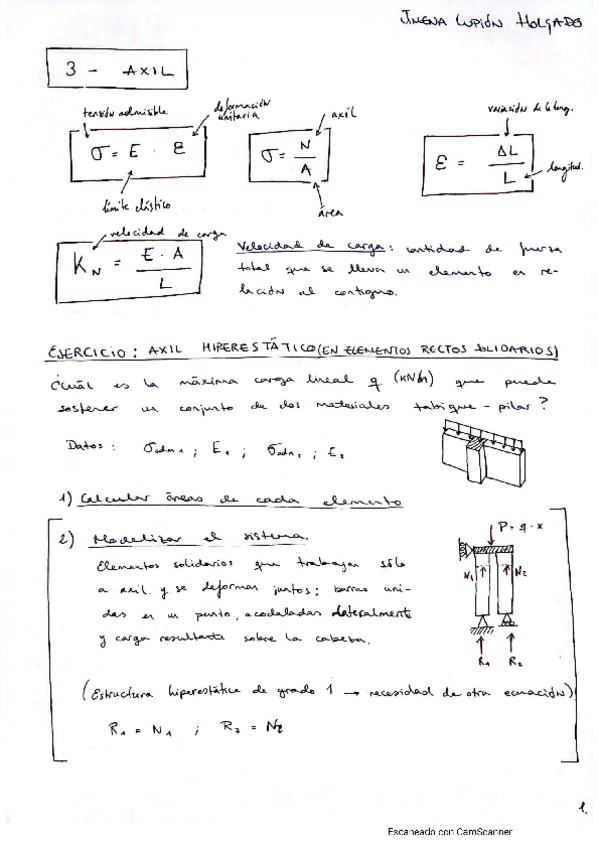 JIMENA LUPIÓN HOLGADO
3 - AXIL
tensión admisible
deformación unitaria
axil
variación de la long.
σ = E · ε
σ = N / A
ε = ΔL / L
longitud.
límite elástico
área
velocidad de carga
K_N = E · A / L
Velocidad de carga: cantidad de fuerza
total que se lleva un elemento en re-
lación al contiguo.
EJERCICIO: AXIL HIPERESTÁTICO (EN ELEMENTOS RECTOS SOLIDARIOS)
¿Cuál es la máxima carga lineal q (kN/m) que puede
sostener un conjunto de dos materiales tabique - pilar?
Datos: σadm₁ ; E₁ ; σadm₂ ; E₂
1) Calcular áreas de cada elemento
2) Modelizar el sistema.
P = q · x
Elementos solidarios que trabajan sólo
a axil y se deforman juntos; barras uni-
N₁ N₂
das en un punto, acodaladas lateralmente
y carga resultante sobre la cabeza.
R₁ R₂
(Estructura hiperestática de grado 1 → necesidad de otra ecuación)
R₁ = N₁ ; R₂ = N₂
1.
Escaneado con CamScanner